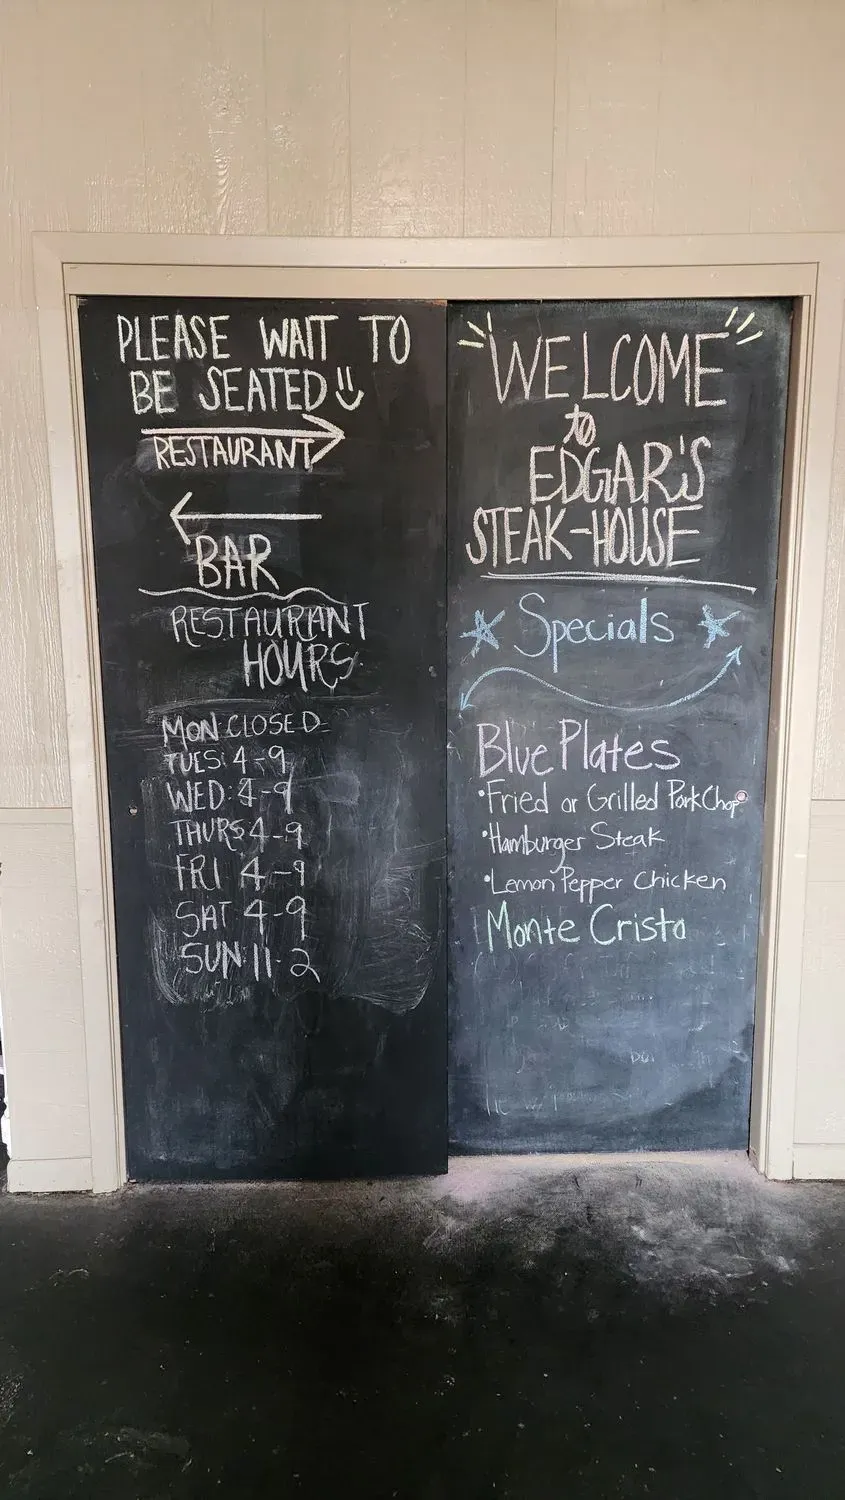 PLEASE WAIT TO
BE SEATED
RESTAURANT
BAR
RESTAURANT
HOURS
MON CLOSED
TUES: 4-9
WED: 4-9
THURS 4-9
FRI 4-9
SAT 4-9
SUN: 11-2
"WELCOME"
to
EDGAR'S
STEAK-HOUSE
Specials
Blue Plates
•Fried or Grilled Pork Chop
•Hamburger Steak
•Lemon Pepper Chicken
Monte Cristo